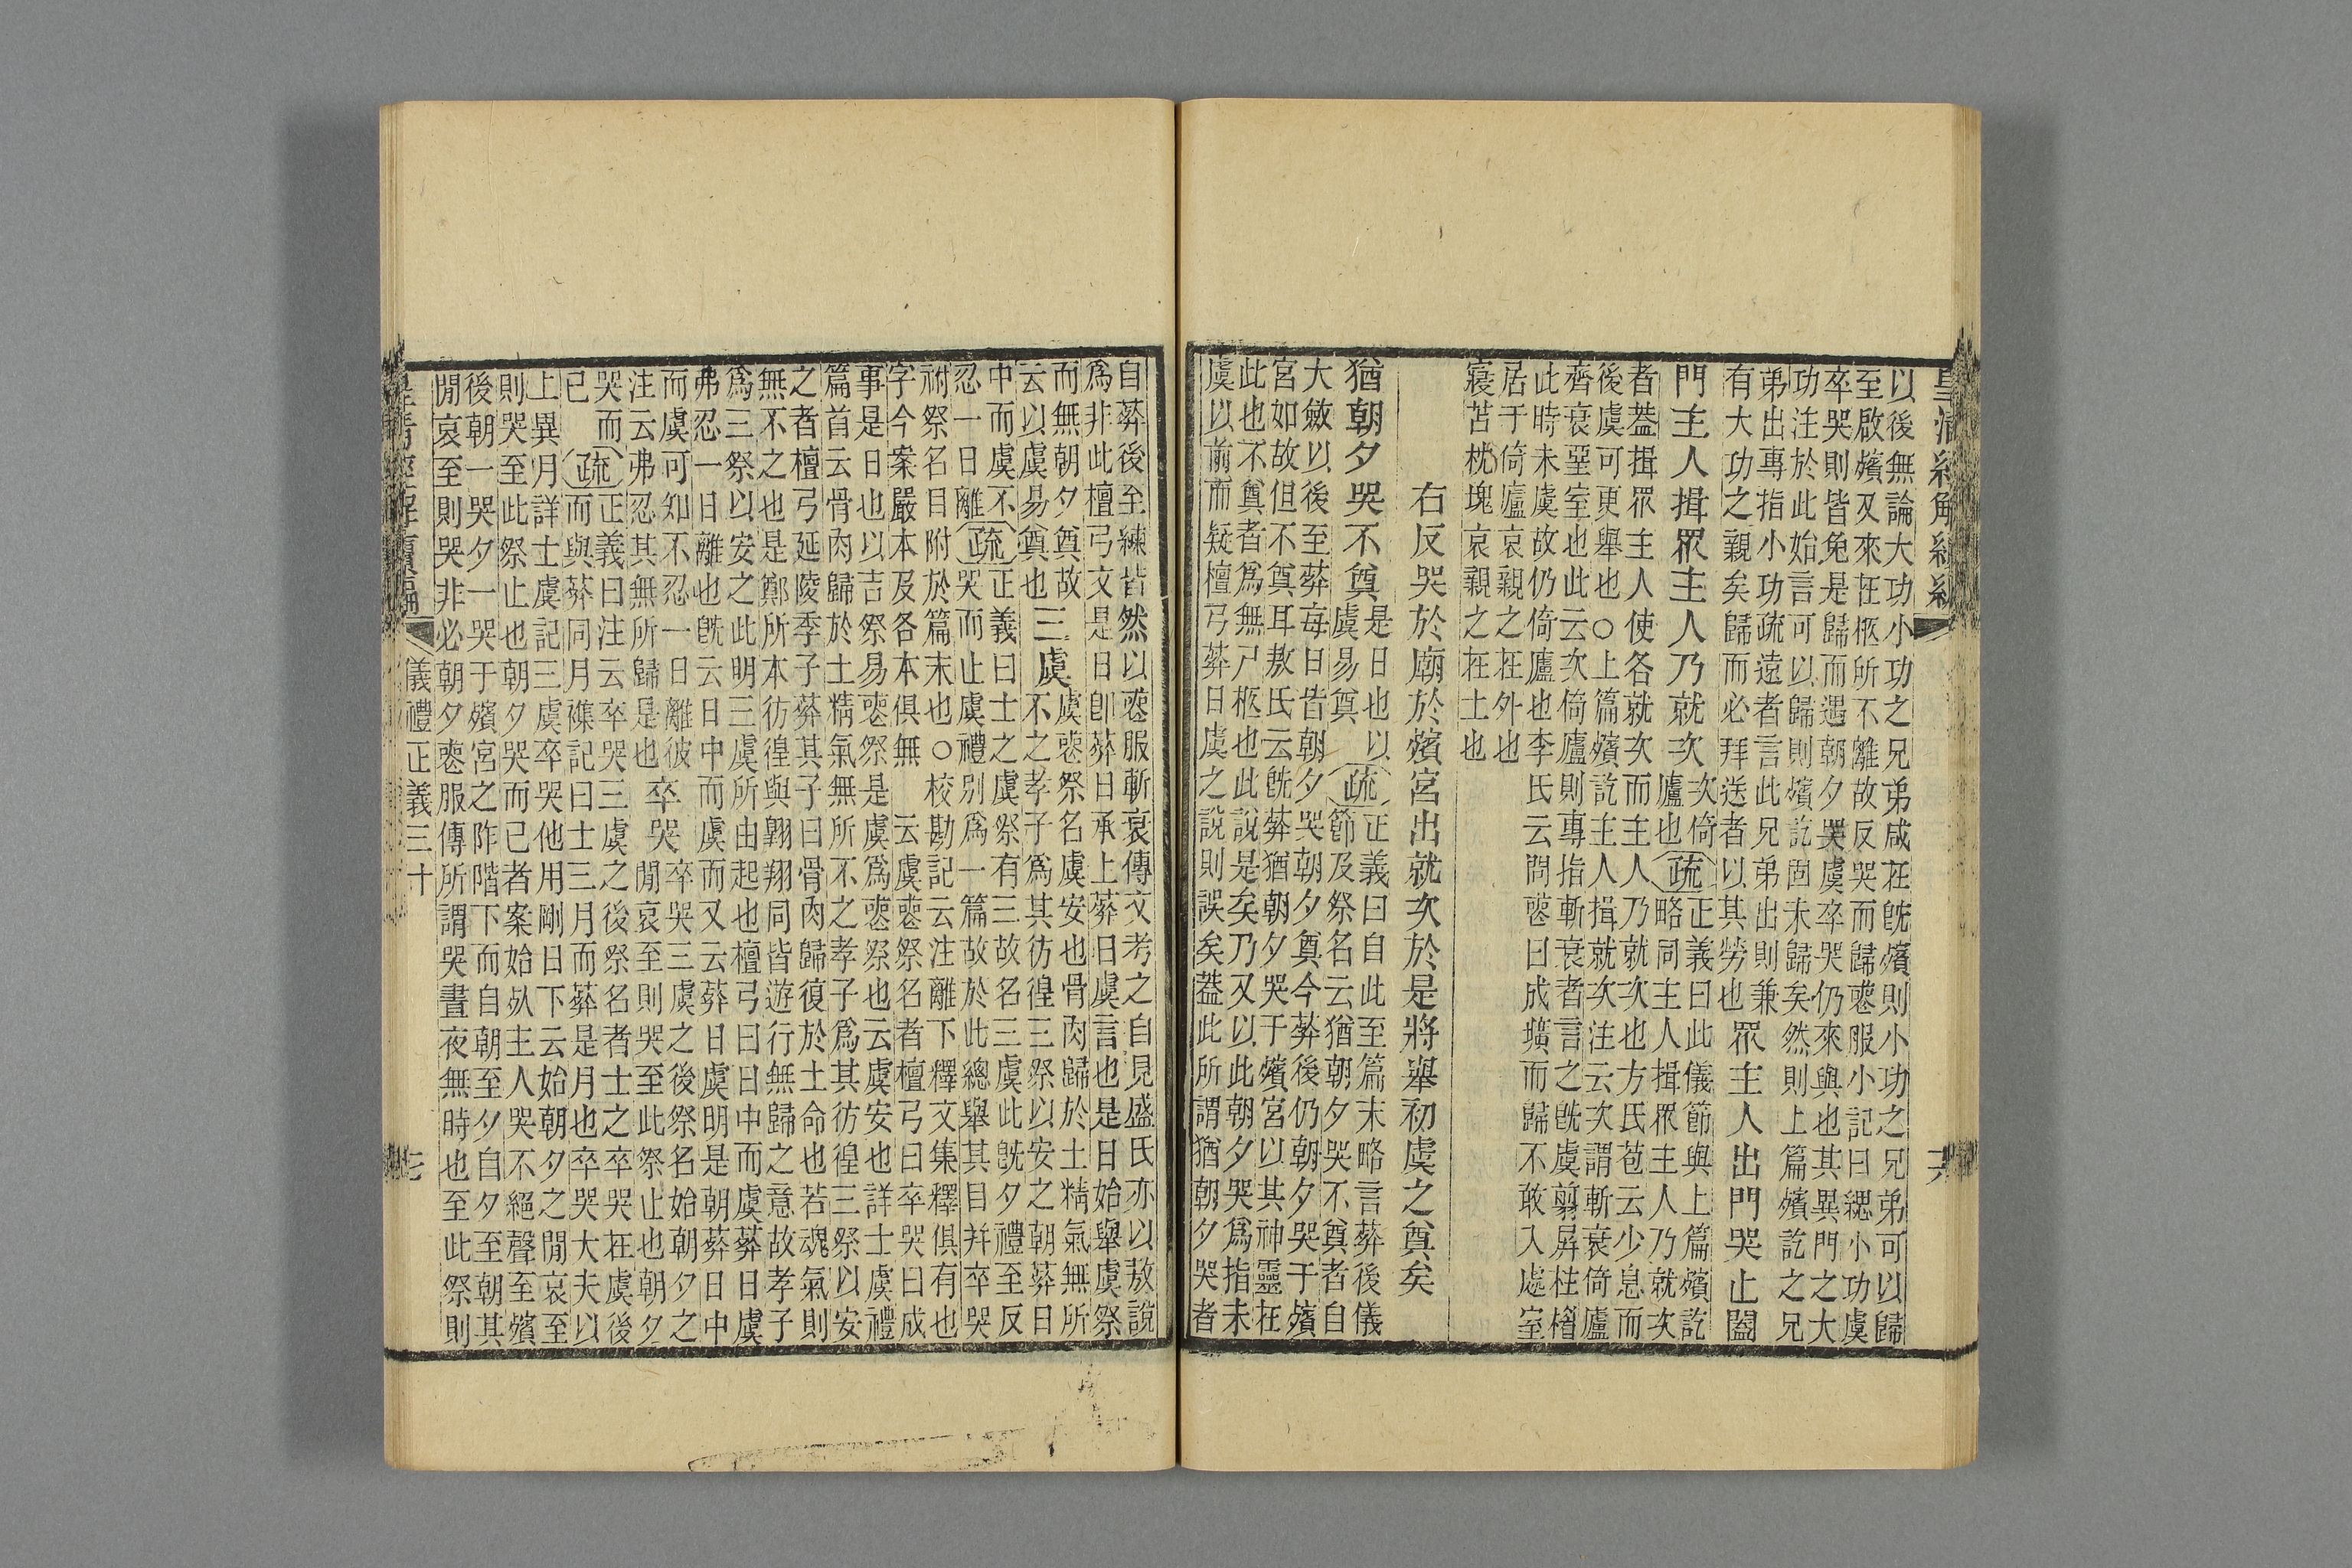 以後無論大功小功之兄弟咸在旣殯則小功之兄弟可以歸
至啟殯又來在柩所不離故反哭而歸䘮服小記曰緦小功虞
卒哭則皆免是歸而遇朝夕哭虞卒哭仍來與也其異門之大
功注於此始言可以歸則殯訖固未歸矣然則上篇殯訖之兄
弟出專指小功疏遠者言此兄弟出則兼
有大功之親矣歸而必拜送者以其勞也
眾主人出門哭止闔
門主人揖眾主人乃就次
次倚
廬也
疏
正義曰此儀節與上篇殯訖
略同主人揖眾主人乃就次
者葢揖眾主人使各就次而主人乃就次也方氏苞云少息而
後虞可更舉也○上篇殯訖主人揖就次注云次謂斬衰倚廬
齊衰堊室也此云次倚廬則專指斬衰者言之旣虞翦屏柱楣
此時未虞故仍倚廬也李氏云問䘮曰成壙而歸不敢入處室
居于倚廬哀親之在外也
寢苫枕塊哀親之在土也
右反哭於廟於殯宮出就次於是將舉初虞之奠矣
猶朝夕哭不奠
是日也以
虞易奠
疏
正義曰自此至篇末略言葬後儀
節及祭名云猶朝夕哭不奠者自
大斂以後至葬每日皆朝夕哭朝夕奠今葬後仍朝夕哭于殯
宮如故但不奠耳敖氏云旣葬猶朝夕哭于殯宮以其神靈在
此也不奠者爲無尸柩也此說是矣乃又以此朝夕哭爲指未
虞以前而疑檀弓葬日虞之說則誤矣葢此所謂猶朝夕哭者
自葬後至練皆然以䘮服斬衰傳文考之自見盛氏亦以敖說
爲非此檀弓文是日卽葬日承上葬日虞言也是日始舉虞祭
而無朝夕奠故
云以虞易奠也
三虞
虞䘮祭名虞安也骨肉歸於土精氣無所
不之孝子爲其彷徨三祭以安之朝葬日
中而虞不
忍一日離
疏
正義曰士之虞祭有三故名三虞此旣夕禮至反
哭而止虞禮別爲一篇故於此總舉其目幷卒哭
祔祭名目附於篇末也○校勘記云注離下釋文集釋俱有也
字今案嚴本及各本俱無 云虞䘮祭名者檀弓曰卒哭曰成
事是日也以吉祭易䘮祭是虞爲䘮祭也云虞安也詳士虞禮
篇首云骨肉歸於土精氣無所不之孝子爲其彷徨三祭以安
之者檀弓延陵季子葬其子曰骨肉歸復於土命也若魂氣則
無不之也是鄭所本彷徨與翺翔同皆遊行無歸之意故孝子
爲三祭以安之此明三虞所由起也檀弓曰日中而虞葬日虞
弗忍一日離也旣云日中而虞而又云葬日虞明是朝葬日中
而虞可知不忍一日離彼
注云弗忍其無所歸是也
卒哭
卒哭三虞之後祭名始朝夕之
閒哀至則哭至此祭止也朝夕
哭而
已
疏
正義曰注云卒哭三虞之後祭名者士之卒哭在虞後
而與葬同月襍記曰士三月而葬是月也卒哭大夫以
上異月詳士虞記三虞卒哭他用剛日下云始朝夕之閒哀至
則哭至此祭止也朝夕哭而已者案始死主人哭不絕聲至殯
後朝一哭夕一哭于殯宮之阼階下而自朝至夕自夕至朝其
閒哀至則哭非必朝夕䘮服傳所謂哭晝夜無時也至此祭則
儀禮正義三十